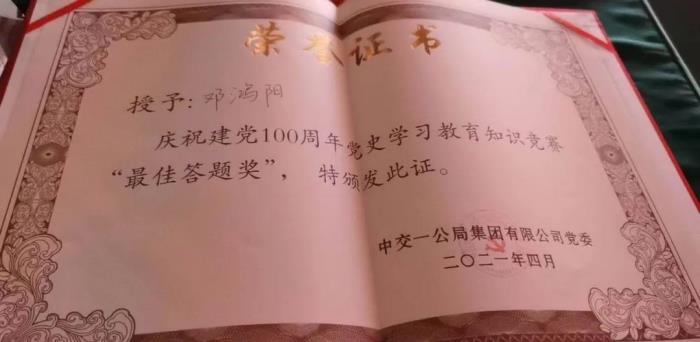 荣誉证书
授予:邓鸿阳
庆祝建党100周年党史学习教育知识竞赛
“最佳答题奖”,特颁发此证。
中交一公局集团有限公司党委
二〇二一年四月